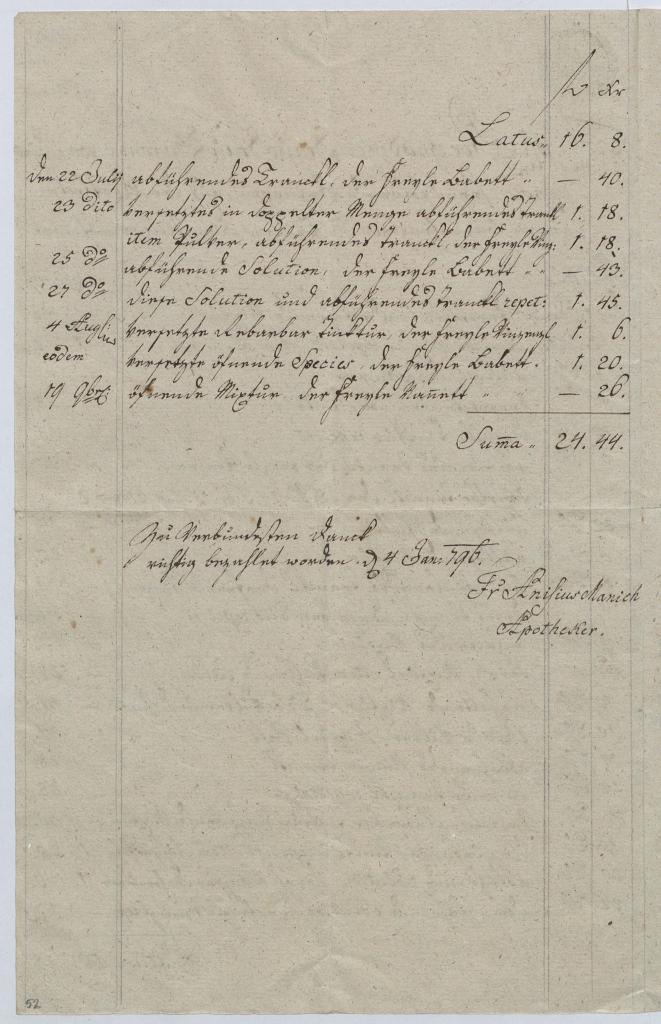 fl Xr
Latus „ 16. 8.
den 22 July abführendes Tranckl, der Freyle Babett „ — 40.
23 dito versetztes in doppelter Menge abführendes Tranckl 1. 18.
item Pulver, abführendes Tranckl, der Freyle 1. 18.
25 do abführende Solution, der Freyle Babett „ „ — 43.
27 do diese Solution und abführendes Tranckl repet: 1. 45.
4 Aug: versetzte Rebarbar Tinktur, der Freyle 1. 6.
eodem versetzte öfnende Species, der Freyle Babett. 1. 20.
19 9br: öfnende Mixtur, der Freyle Nannett „ — 26.
Summa „ 24. 44.
Zu Verbundesten Danck
richtig bezahlet worden d 4 Jan: 796.
Fr: Anisius Manich
Apotheker.
52